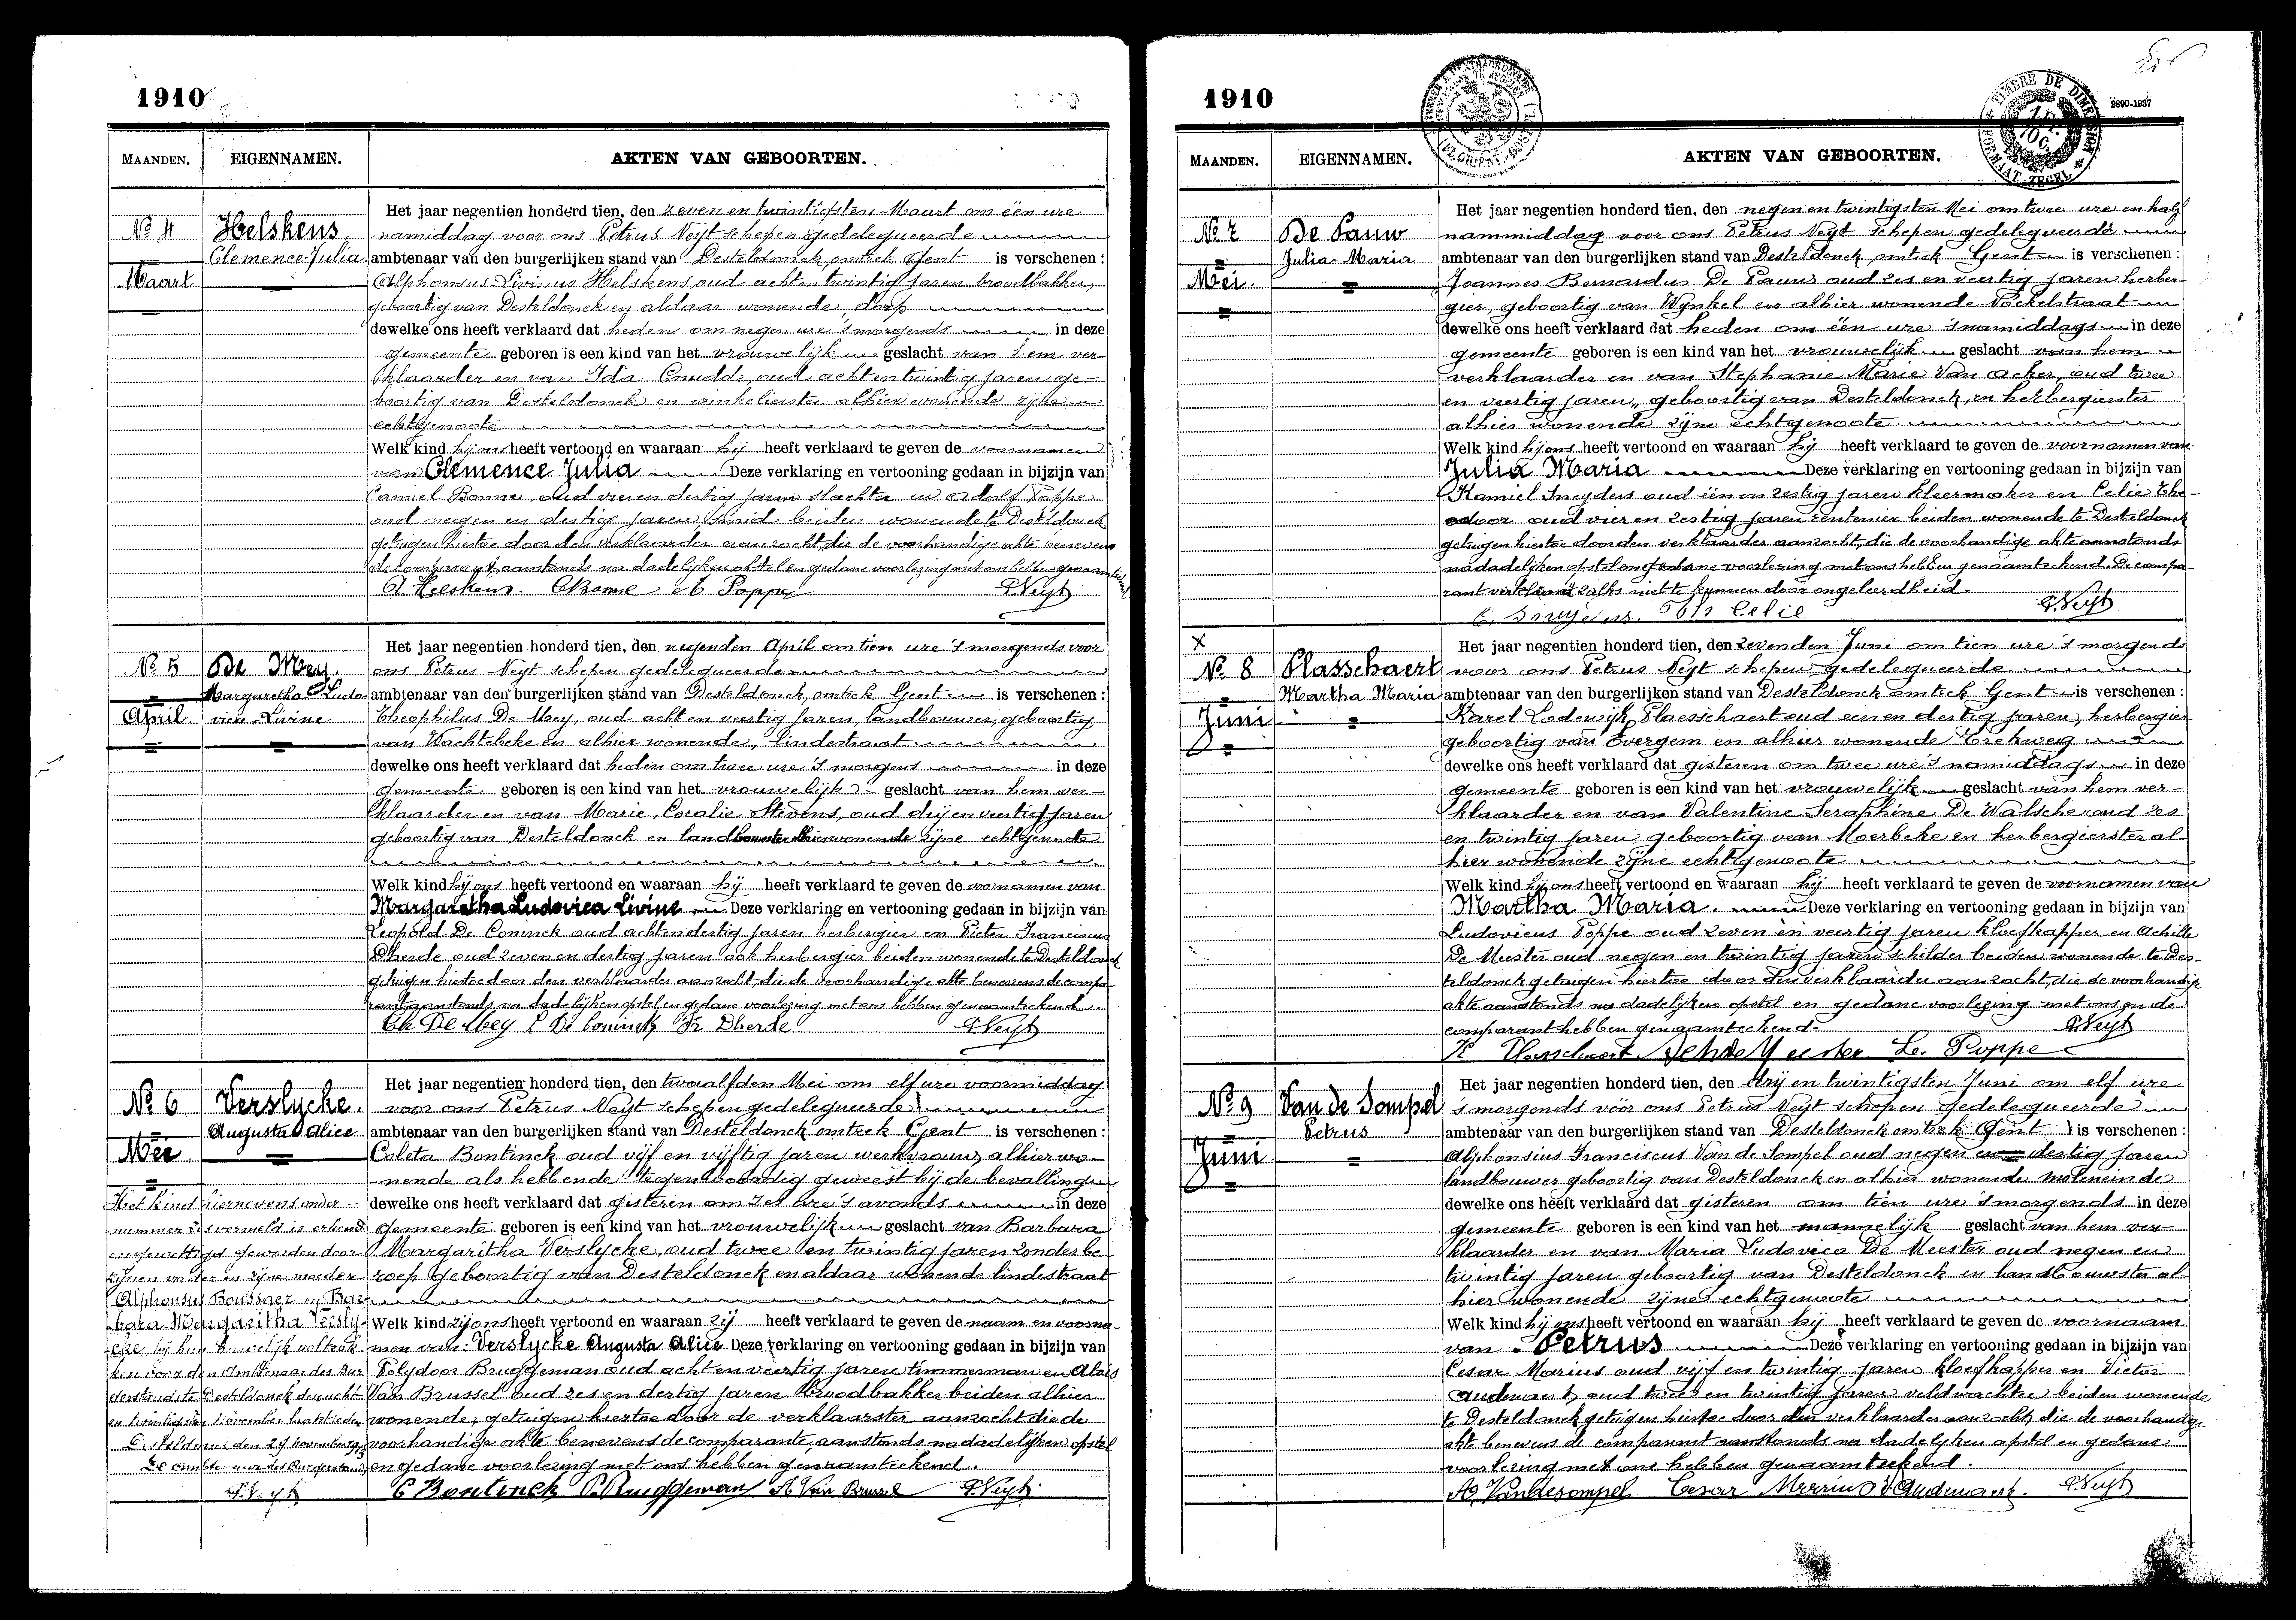 1910
MAANDEN. EIGENNAMEN. AKTEN VAN GEBOORTEN.
No 4
Maart
Helskens
Clemence Julia
Het jaar negentien honderd tien, den zeven en twintigsten Maart om één ure
namiddag voor ons Petrus Neyt schepen gedelegueerde
ambtenaar van den burgerlijken stand van Desteldonck, omtrek Gent is verschenen :
Alphonsus Livinus Helskens, oud acht twintig jaren broodbakker,
geboortig van Desteldonck en aldaar wonende, dorp
dewelke ons heeft verklaard dat heden om negen ure 's morgends in deze
gemeente geboren is een kind van het vrouwelijk geslacht van hem ver-
klaarder en van Ida Cnudde, oud acht en twintig jaren ge-
boortig van Desteldonck en winkelierster alhier wonende zijne
echtgenoote
Welk kind hij ons heeft vertoond en waaraan hij heeft verklaard te geven de voornamen
van Clemence Julia Deze verklaring en vertooning gedaan in bijzijn van
Camiel Bonne, oud vier en dertig jaren slachter en Adolf Poppe
oud negen en dertig jaren, smid beiden wonende te Desteldonck
getuigen hiertoe door den verklaarder aanzocht, die de voorhandige akte benevens
de comparant, aanstonds na dadelijken opstel en gedane voorlezing met ons hebben genaamteekend
A Helskens. C Bonne A Poppe P. Neyt
No 5
April
De Mey
Margaretha Ludo-
vica Livine
Het jaar negentien honderd tien, den negenden April om tien ure 's morgends voor
ons Petrus Neyt schepen gedelegueerde
ambtenaar van den burgerlijken stand van Desteldonck, omtrek Gent is verschenen :
Theophilus De Mey, oud acht en veertig jaren, landbouwer, geboortig
van Wachtebeke en alhier wonende, Lindestraat
dewelke ons heeft verklaard dat heden om twee ure 's morgens in deze
gemeente geboren is een kind van het vrouwelijk geslacht van hem ver-
klaarder en van Marie Coralie Stevens, oud drij en veertig jaren
geboortig van Desteldonck en landbouwster alhier wonende zijne echtgenoote
Welk kind hij ons heeft vertoond en waaraan hij heeft verklaard te geven de voornamen van
Margaretha Ludovica Livine Deze verklaring en vertooning gedaan in bijzijn van
Leopold De Coninck oud acht en dertig jaren herbergier en Pieter Franciscus
Dherde oud zeven en dertig jaren ook herbergier beiden wonende te Desteldonck
getuigen hiertoe door den verklaarder aanzocht, die de voorhandige akte benevens de compa-
rant aanstonds na dadelijken opstel en gedane voorlezing met ons hebben genaamteekend
Th De Mey L De Coninck Fr Dherde P. Neyt
No 6
Mei
Verslycke
Augusta Alice
Het kind hiernevens onder
nummer zes vermeld is erkend
en gewettigd geworden door
zijnen vader en zijne moeder
Alphonsus Boussaer en Bar-
bara Margaritha Versly-
cke bij hun huwelijk voltrok-
ken voor den Ambtenaar des Bur-
gerstands te Desteldonck den acht
en twintigsten November laatstleden
Desteldonck den 29 november
De ambtenaar des Burgerstands
P. Neyt
Het jaar negentien honderd tien, den twaalfden Mei om elf ure voormiddag
voor ons Petrus Neyt schepen gedelegueerde
ambtenaar van den burgerlijken stand van Desteldonck omtrek Gent is verschenen :
Coleta Bontinck oud vijf en vijftig jaren werkvrouw, alhier wo-
nende als hebbende tegenwoordig geweest bij de bevalling
dewelke ons heeft verklaard dat gisteren om zes ure 's avonds in deze
gemeente geboren is een kind van het vrouwelijk geslacht van Barbara
Margaritha Verslycke, oud twee en twintig jaren zonder be-
roep geboortig van Desteldonck en aldaar wonende lindestraat
Welk kind zij ons heeft vertoond en waaraan zij heeft verklaard te geven de naam en voorna-
men van Verslycke Augusta Alice Deze verklaring en vertooning gedaan in bijzijn van
Polydoor Bruggeman oud acht en veertig jaren timmerman en Alois
Van Brussel oud zes en dertig jaren broodbakker beiden alhier
wonende, getuigen hiertoe door de verklaarster aanzocht die de
voorhandige akte benevens de comparante, aanstonds na dadelijken opstel
en gedane voorlezing met ons hebben genaamteekend.
C Bontinck P. Bruggeman A Van Brussel P. Neyt
1910
2890-1937
TIMBRE DE DIMENSION
FORMAAT ZEGEL
MAANDEN. EIGENNAMEN. AKTEN VAN GEBOORTEN.
No 7
Mei.
De Pauw
Julia Maria
Het jaar negentien honderd tien, den negen en twintigsten Mei om twee ure en half
nammiddag voor ons Petrus Neyt schepen gedelegueerde
ambtenaar van den burgerlijken stand van Desteldonck, omtrek Gent is verschenen :
Joannes Bernardus De Pauw oud zes en veertig jaren herber-
gier, geboortig van Wynkel en alhier wonende
dewelke ons heeft verklaard dat heden om één ure 's namiddags in deze
gemeente geboren is een kind van het vrouwelijk geslacht van hem
verklaarder en van Stephanie Marie Van Acker, oud twee
en veertig jaren, geboortig van Desteldonck, en herbergierster
alhier wonende zijne echtgenoote
Welk kind hij ons heeft vertoond en waaraan hij heeft verklaard te geven de voornamen van
Julia Maria Deze verklaring en vertooning gedaan in bijzijn van
Kamiel Sneyders oud één en zestig jaren kleermaker en Celie The-
odoor oud vier en zestig jaren rentenier beiden wonende te Desteldonck
getuigen hiertoe door den verklaarder aanzocht, die de voorhandige akte aanstonds
na dadelijken opstel en gedane voorlezing met ons hebben genaamteekend. De compa-
rant verklaart zulks niet te kunnen door ongeleerdheid.
C. Snyders. Th Celie P. Neyt
X
No 8
Juni
Plasschaert
Martha Maria
Het jaar negentien honderd tien, den zevenden Juni om tien ure 's morgends
voor ons Petrus Neyt schepen gedelegueerde
ambtenaar van den burgerlijken stand van Desteldonck omtrek Gent is verschenen :
Karel Lodewijk Plaesschaert oud een en dertig jaren, herbergier
geboortig van Evergem en alhier wonende
dewelke ons heeft verklaard dat gisteren om twee ure 's namiddags in deze
gemeente geboren is een kind van het vrouwelijk geslacht van hem ver-
klaarder en van Valentine Seraphine De Walsche oud zes
en twintig jaren geboortig van Moerbeke en herbergierster al-
hier wonende zijne echtgenoote
Welk kind hij ons heeft vertoond en waaraan hij heeft verklaard te geven de voornamen van
Martha Maria Deze verklaring en vertooning gedaan in bijzijn van
Ludovicus Poppe oud zeven en veertig jaren kloefkapper en Achille
De Meester oud negen en twintig jaren schilder beiden wonende te Des-
teldonck getuigen hiertoe door den verklaarder aanzocht, die de voorhandige
akte aanstonds na dadelijken opstel en gedane voorlezing met ons en de
comparant hebben genaamteekend. P. Neyt
K Plasschaert Ach de Meester Lo. Poppe
No 9
Juni
Van de Sompel
Petrus
Het jaar negentien honderd tien, den drij en twintigsten Juni om elf ure
's morgends vóór ons Petrus Neyt schepen gedelegueerde
ambtenaar van den burgerlijken stand van Desteldonck omtrek Gent is verschenen :
Alphonsius Franciscus Van de Sompel oud negen en dertig jaren
landbouwer geboortig van Desteldonck en alhier wonende Moleneinde
dewelke ons heeft verklaard dat gisteren om tien ure 's morgends in deze
gemeente geboren is een kind van het mannelijk geslacht van hem ver-
klaarder en van Maria Ludovica De Meester oud negen en
twintig jaren geboortig van Desteldonck en landbouwster al-
hier wonende zijne echtgenoote
Welk kind hij ons heeft vertoond en waaraan hij heeft verklaard te geven de voornaam
van Petrus Deze verklaring en vertooning gedaan in bijzijn van
Cesar Marius oud vijf en twintig jaren kloefkapper en Victor
Audenaert, oud twee en twintig jaren veldwachter beiden wonende
te Desteldonck getuigen hiertoe door den verklaarder aanzocht, die de voorhandige
akte benevens de comparant aanstonds na dadelyken opstel en gedane
voorlezing met ons hebben genaamteekend.
A. Vandesompel Cesar V. Audenaert. P. Neyt